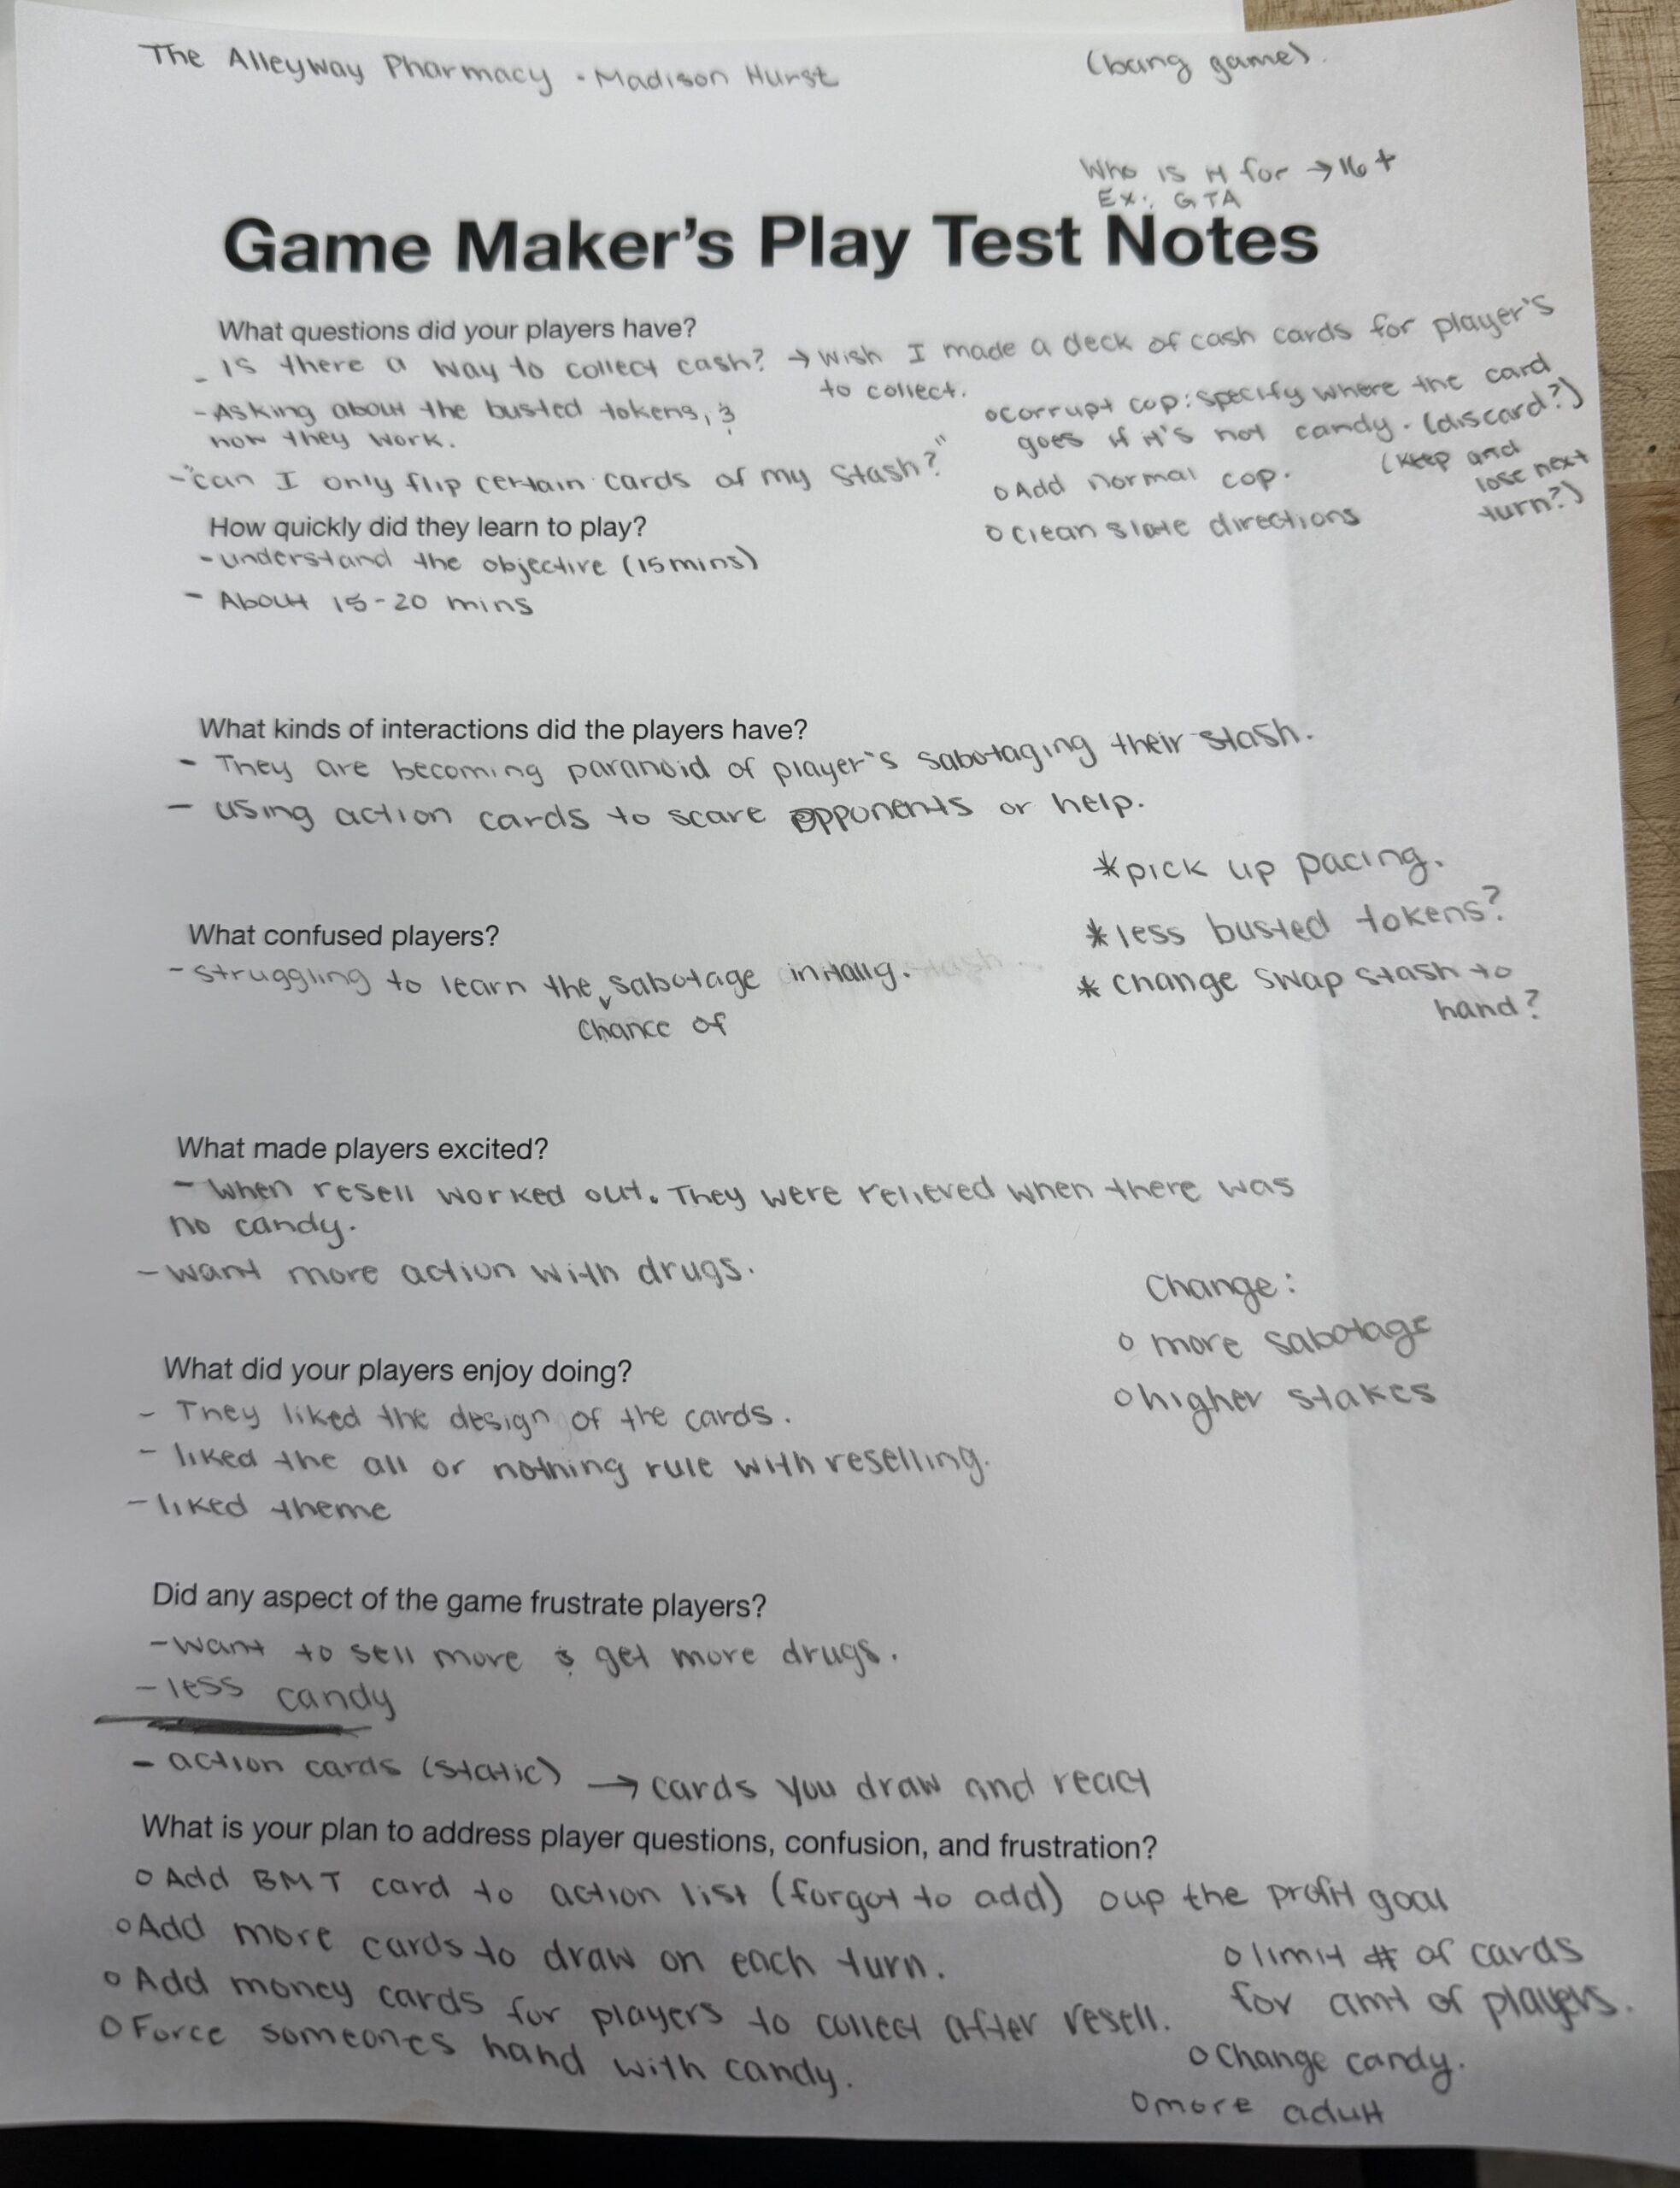 The Alleyway Pharmacy - Madison Hurst
(bang game).
Who is it for → 16+
Ex: GTA
Game Maker's Play Test Notes
What questions did your players have?
- Is there a way to collect cash? → wish I made a deck of cash cards for player's
to collect.
- Asking about the busted tokens, &
how they work.
- "can I only flip certain cards of my stash?"
o corrupt cop: specify where the card
goes if it's not candy. (discard?)
(keep and
lose next
turn?)
o Add normal cop.
o clean slate directions
How quickly did they learn to play?
- understand the objective (15mins)
- About 15-20 mins
What kinds of interactions did the players have?
- They are becoming paranoid of player's sabotaging their stash.
- using action cards to scare opponents or help.
* pick up pacing.
* less busted tokens?
* change swap stash to
hand?
What confused players?
- struggling to learn the sabotage initially.
chance of
What made players excited?
- when resell worked out. They were relieved when there was
no candy.
- want more action with drugs.
Change:
o more sabotage
o higher stakes
What did your players enjoy doing?
- They liked the design of the cards.
- liked the all or nothing rule with reselling.
- liked theme
Did any aspect of the game frustrate players?
- want to sell more & get more drugs.
- less candy
- action cards (static) → cards you draw and react
What is your plan to address player questions, confusion, and frustration?
o Add BMT card to action list (forgot to add)
o up the profit goal
o Add more cards to draw on each turn.
o limit # of cards
for amt of players.
o Add money cards for players to collect after resell.
o Force someones hand with candy.
o Change candy.
o more adult